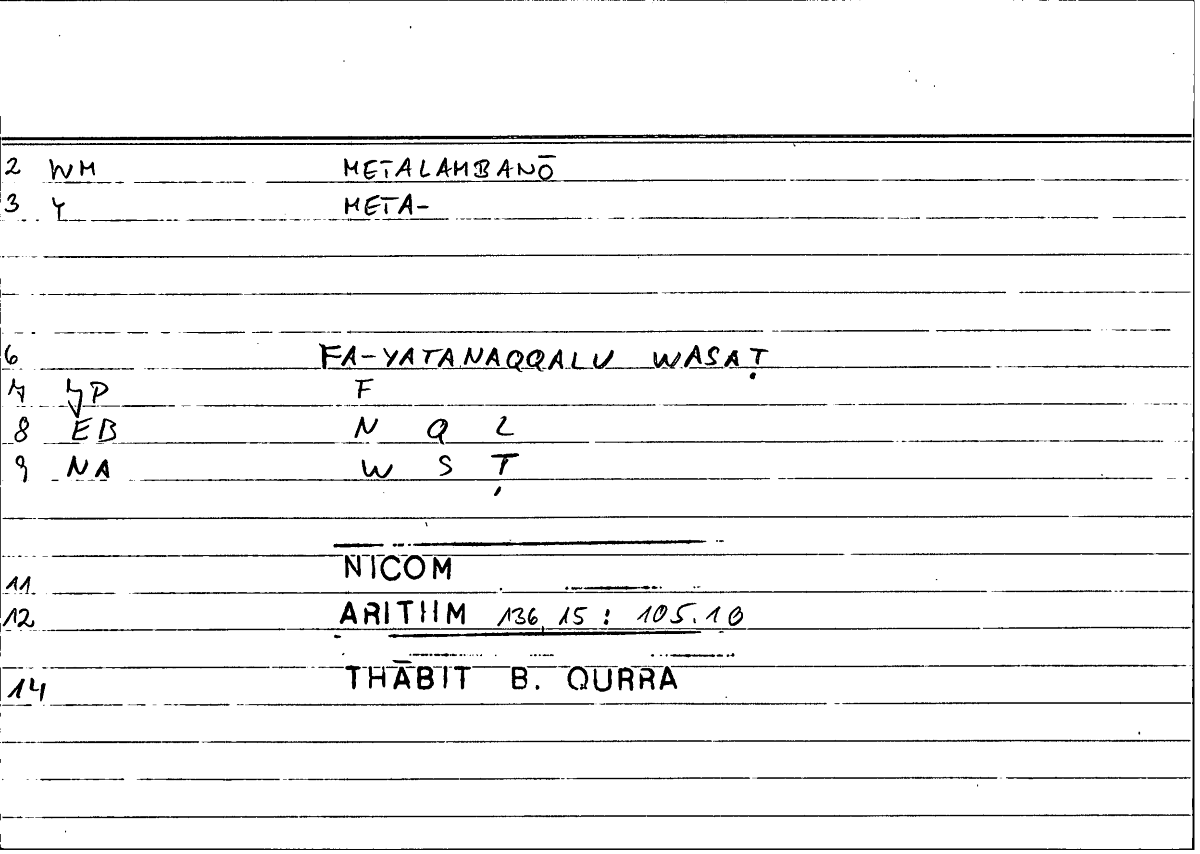 2 WM METALAMBANŌ
3 Y META-
6 FA-YATANAQQALU WASAṬ
7 P F
8 EB N Q L
9 NA W S Ṭ
NICOM
11
12 ARITIIM 136,15 : 105.10
14 THĀBIT B. QURRA